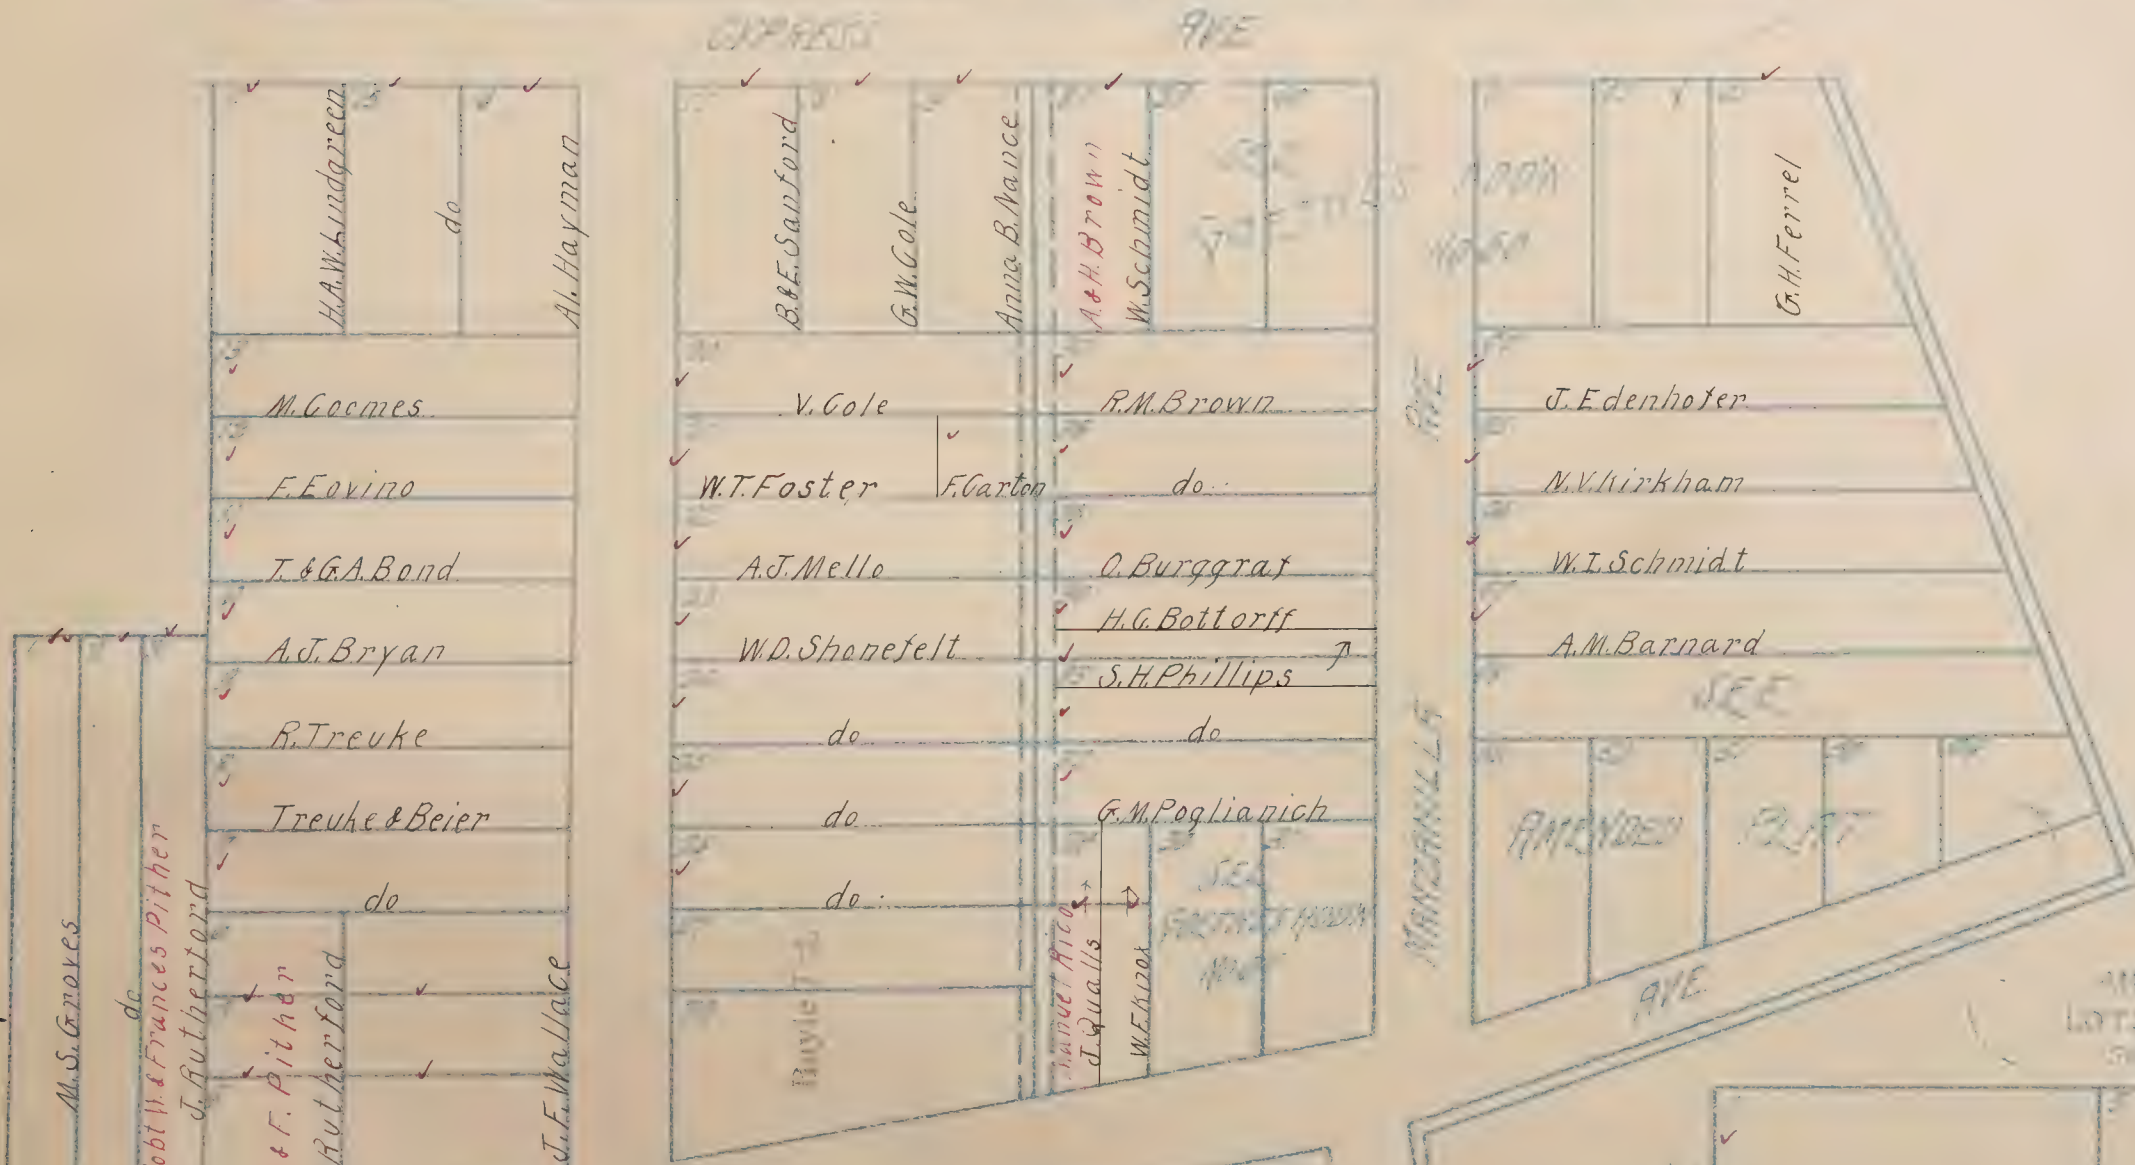 EXPRESS AVE
H.A.W. Lindgreen
do
Al. Hayman
B. & E. Sanford
G.W. Cole
Anna B. Nance
A. & H. Brown
W. Schmidt
SEE
G.H. Ferrel
M. Cocmes
F. Eovino
T. & G.A. Bond
A.J. Bryan
R. Treuke
Treuke & Beier
do
V. Cole
W.T. Foster
F. Garton
A.J. Mello
W.D. Shonefelt
do
do
do
R.M. Brown
do
O. Burggraf
H.C. Bottorff
S.H. Phillips
do
G.M. Poglianich
MANZANILLA AVE
J. Edenhofer
N.V. Kirkham
W.I. Schmidt
A.M. Barnard
SEE
AMENDED PLAT
AVE.
SEE
Manuel Rico
J. Qualls
W.E. Knox
M.S. Groves
do
& Frances Pither
J. Rutherford
& F. Pither
Rutherford
J.F. Wallace